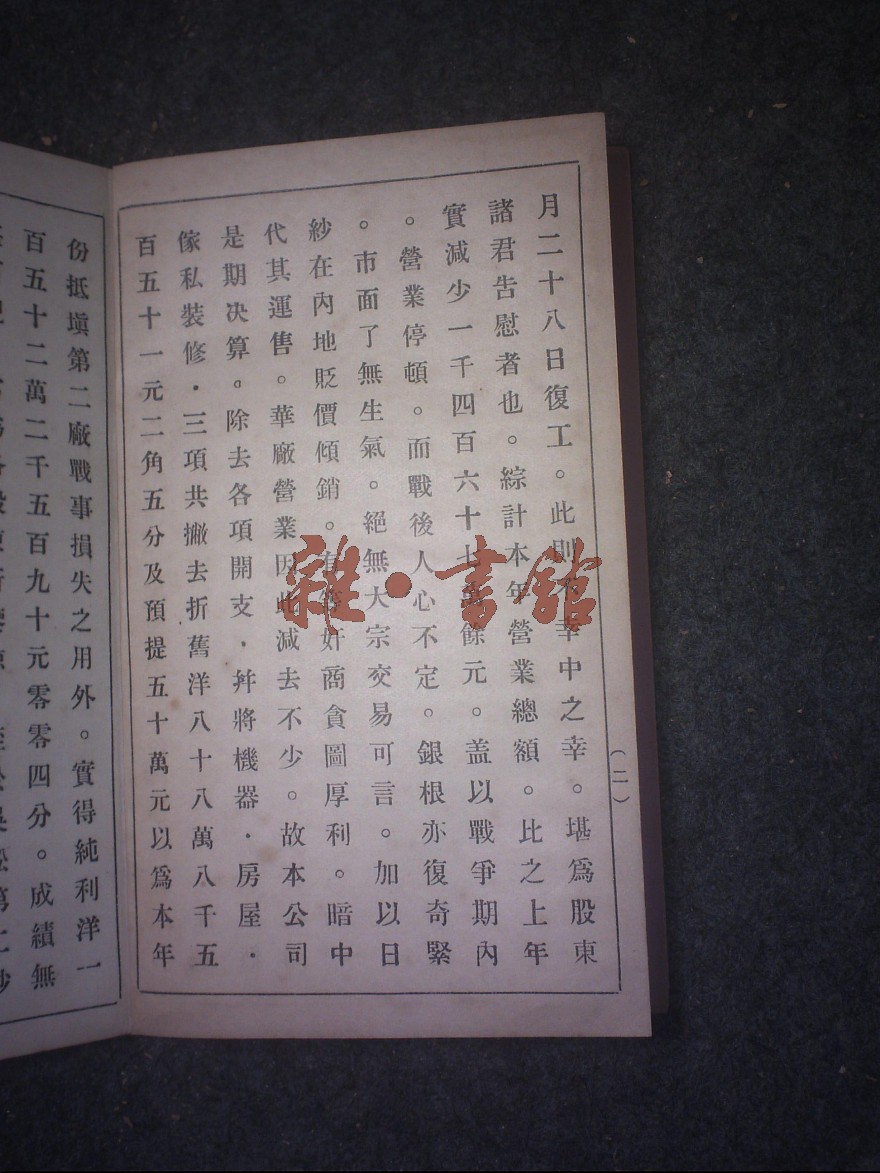 月二十八日復工。此則不幸中之幸。堪爲股東
諸君告慰者也。綜計本年營業總額。比之上年
實減少一千四百六十七萬餘元。盖以戰爭期內
。營業停頓。而戰後人心不定。銀根亦復奇緊
。市面了無生氣。絕無大宗交易可言。加以日
紗在內地貶價傾銷。有奸商貪圖厚利。暗中
代其運售。華廠營業因此減去不少。故本公司
是期决算。除去各項開支．幷將機器．房屋．
傢私裝修．三項共撇去折舊洋八十八萬八千五
百五十一元二角五分及預提五十萬元以爲本年
(二)
份抵塡第二廠戰事損失之用外。實得純利洋一
百五十二萬二千五百九十元零零四分。成績無
雜·書館